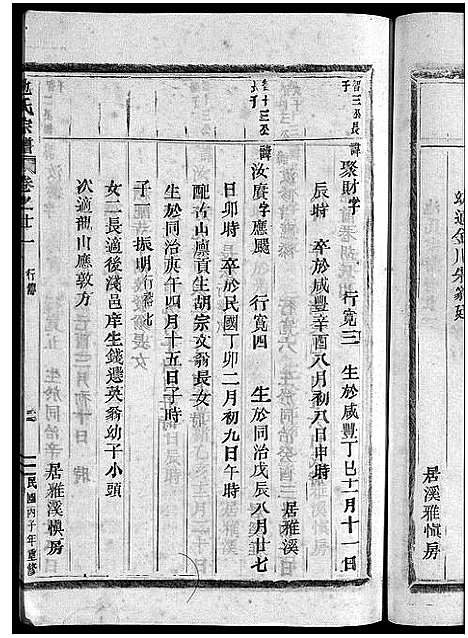 幼適金川朱翁廷
居溪雅慎房
智三公長子
諱聚財字 行寬三 生於咸豐丁巳十一月十一日
辰時 卒於咸豐辛酉八月初八日申時
居雅溪
十三公長子
諱汝賡字應颺 行寬四 生於同治戊辰八月廿七
日卯時 卒於民國丁卯二月初九日午時
配古山廩貢生胡宗文翁長女
生於同治庚午四月十五日子時
子一振明行
女二長適後淺邑庠生錢選英翁幼子小頭
次適龍山應敦方
居雅溪慎房
氏宗譜 卷之廿一 行傳 民國丙子年重修